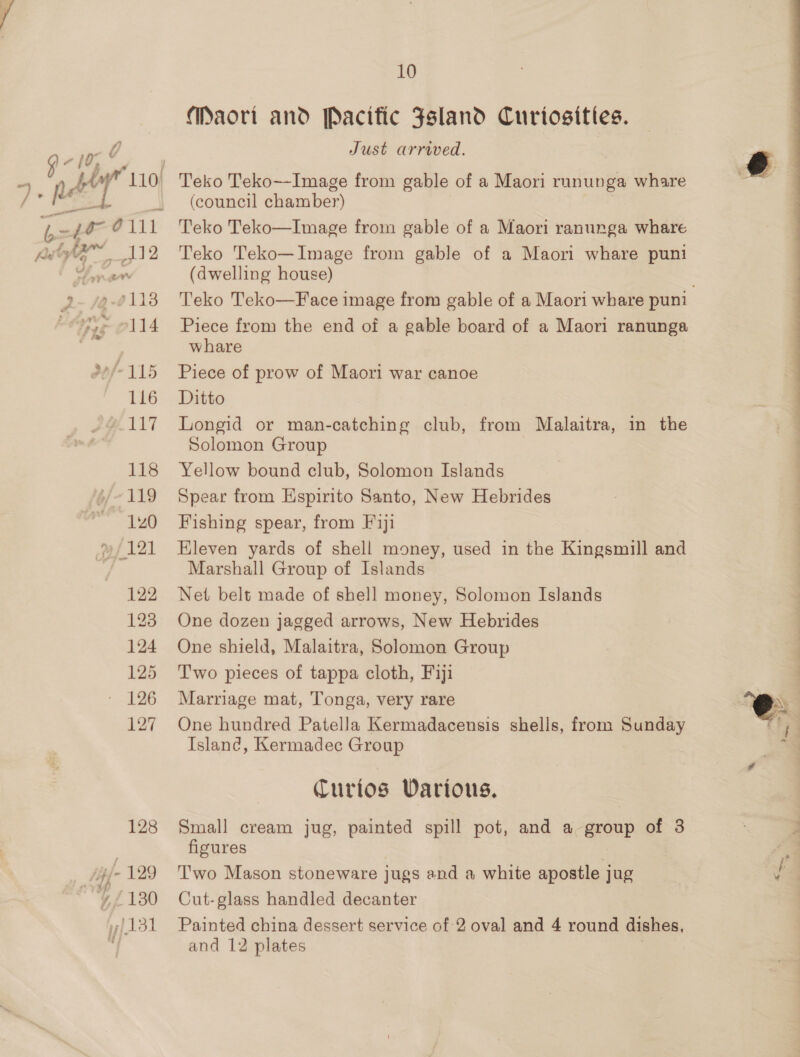 10
Maori and Pacific Island Curiosities.
Just arrived.
110 Teko Teko—Image from gable of a Maori rununga whare
(council chamber)
111 Teko Teko—Image from gable of a Maori ranunga whare
112 Teko Teko—Image from gable of a Maori whare puni
(dwelling house)
113 Teko Teko—Face image from gable of a Maori whare puni
114 Piece from the end of a gable board of a Maori ranunga
whare
115 Piece of prow of Maori war canoe
116 Ditto
117 Longid or man-catching club, from Malaitra, in the
Solomon Group
118 Yellow bound club, Solomon Islands
119 Spear from Espirito Santo, New Hebrides
120 Fishing spear, from Fiji
121 Eleven yards of shell money, used in the Kingsmill and
Marshall Group of Islands
122 Net belt made of shell money, Solomon Islands
123 One dozen jagged arrows, New Hebrides
124 One shield, Malaitra, Solomon Group
125 Two pieces of tappa cloth, Fiji
126 Marriage mat, Tonga, very rare
127 One hundred Patella Kermadacensis shells, from Sunday
Island, Kermadec Group
Curios Various.
128 Small cream jug, painted spill pot, and a group of 3
figures
129 Two Mason stoneware jugs and a white apostle jug
130 Cut-glass handled decanter
131 Painted china dessert service of 2 oval and 4 round dishes,
and 12 plates